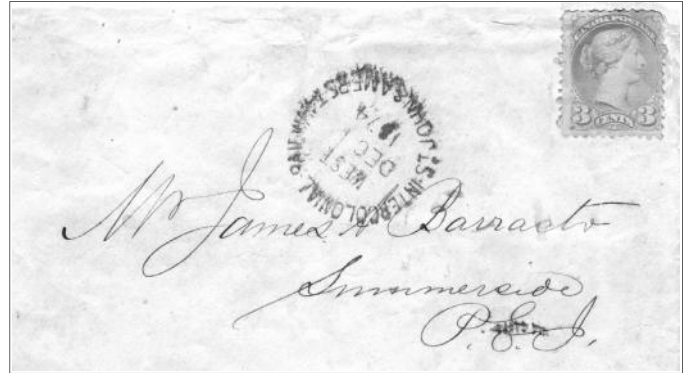 CANADA POSTAGE
3 CENTS 3
ST. JOHN & AMHERST
INTERCOLONIAL RAILWAY
WEST
DEC
1874
Mr James A Barracto
Summerside
P.E.I.